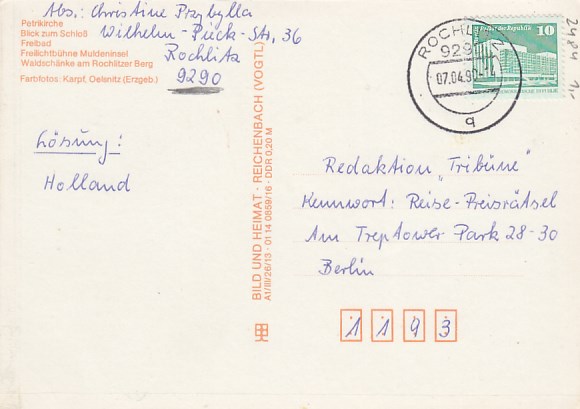 Abs.: Christine Przybylla
Wilhelm-Pieck-Str. 36
Rochlitz
9290
Petrikirche
Blick zum Schloß
Freibad
Freilichtbühne Muldeninsel
Waldschänke am Rochlitzer Berg
Farbfotos: Karpf, Oelsnitz (Erzgeb.)
Lösung:
Holland
BILD UND HEIMAT · REICHENBACH (VOGTL)
A1/III/26/13 · 01 14 0859/16 · DDR 0,20 M
07.04.90
q
10
2484
1,-
Redaktion „Tribüne"
Kennwort: Reise-Preisrätsel
Am Treptower Park 28-30
Berlin
1 1 9 3